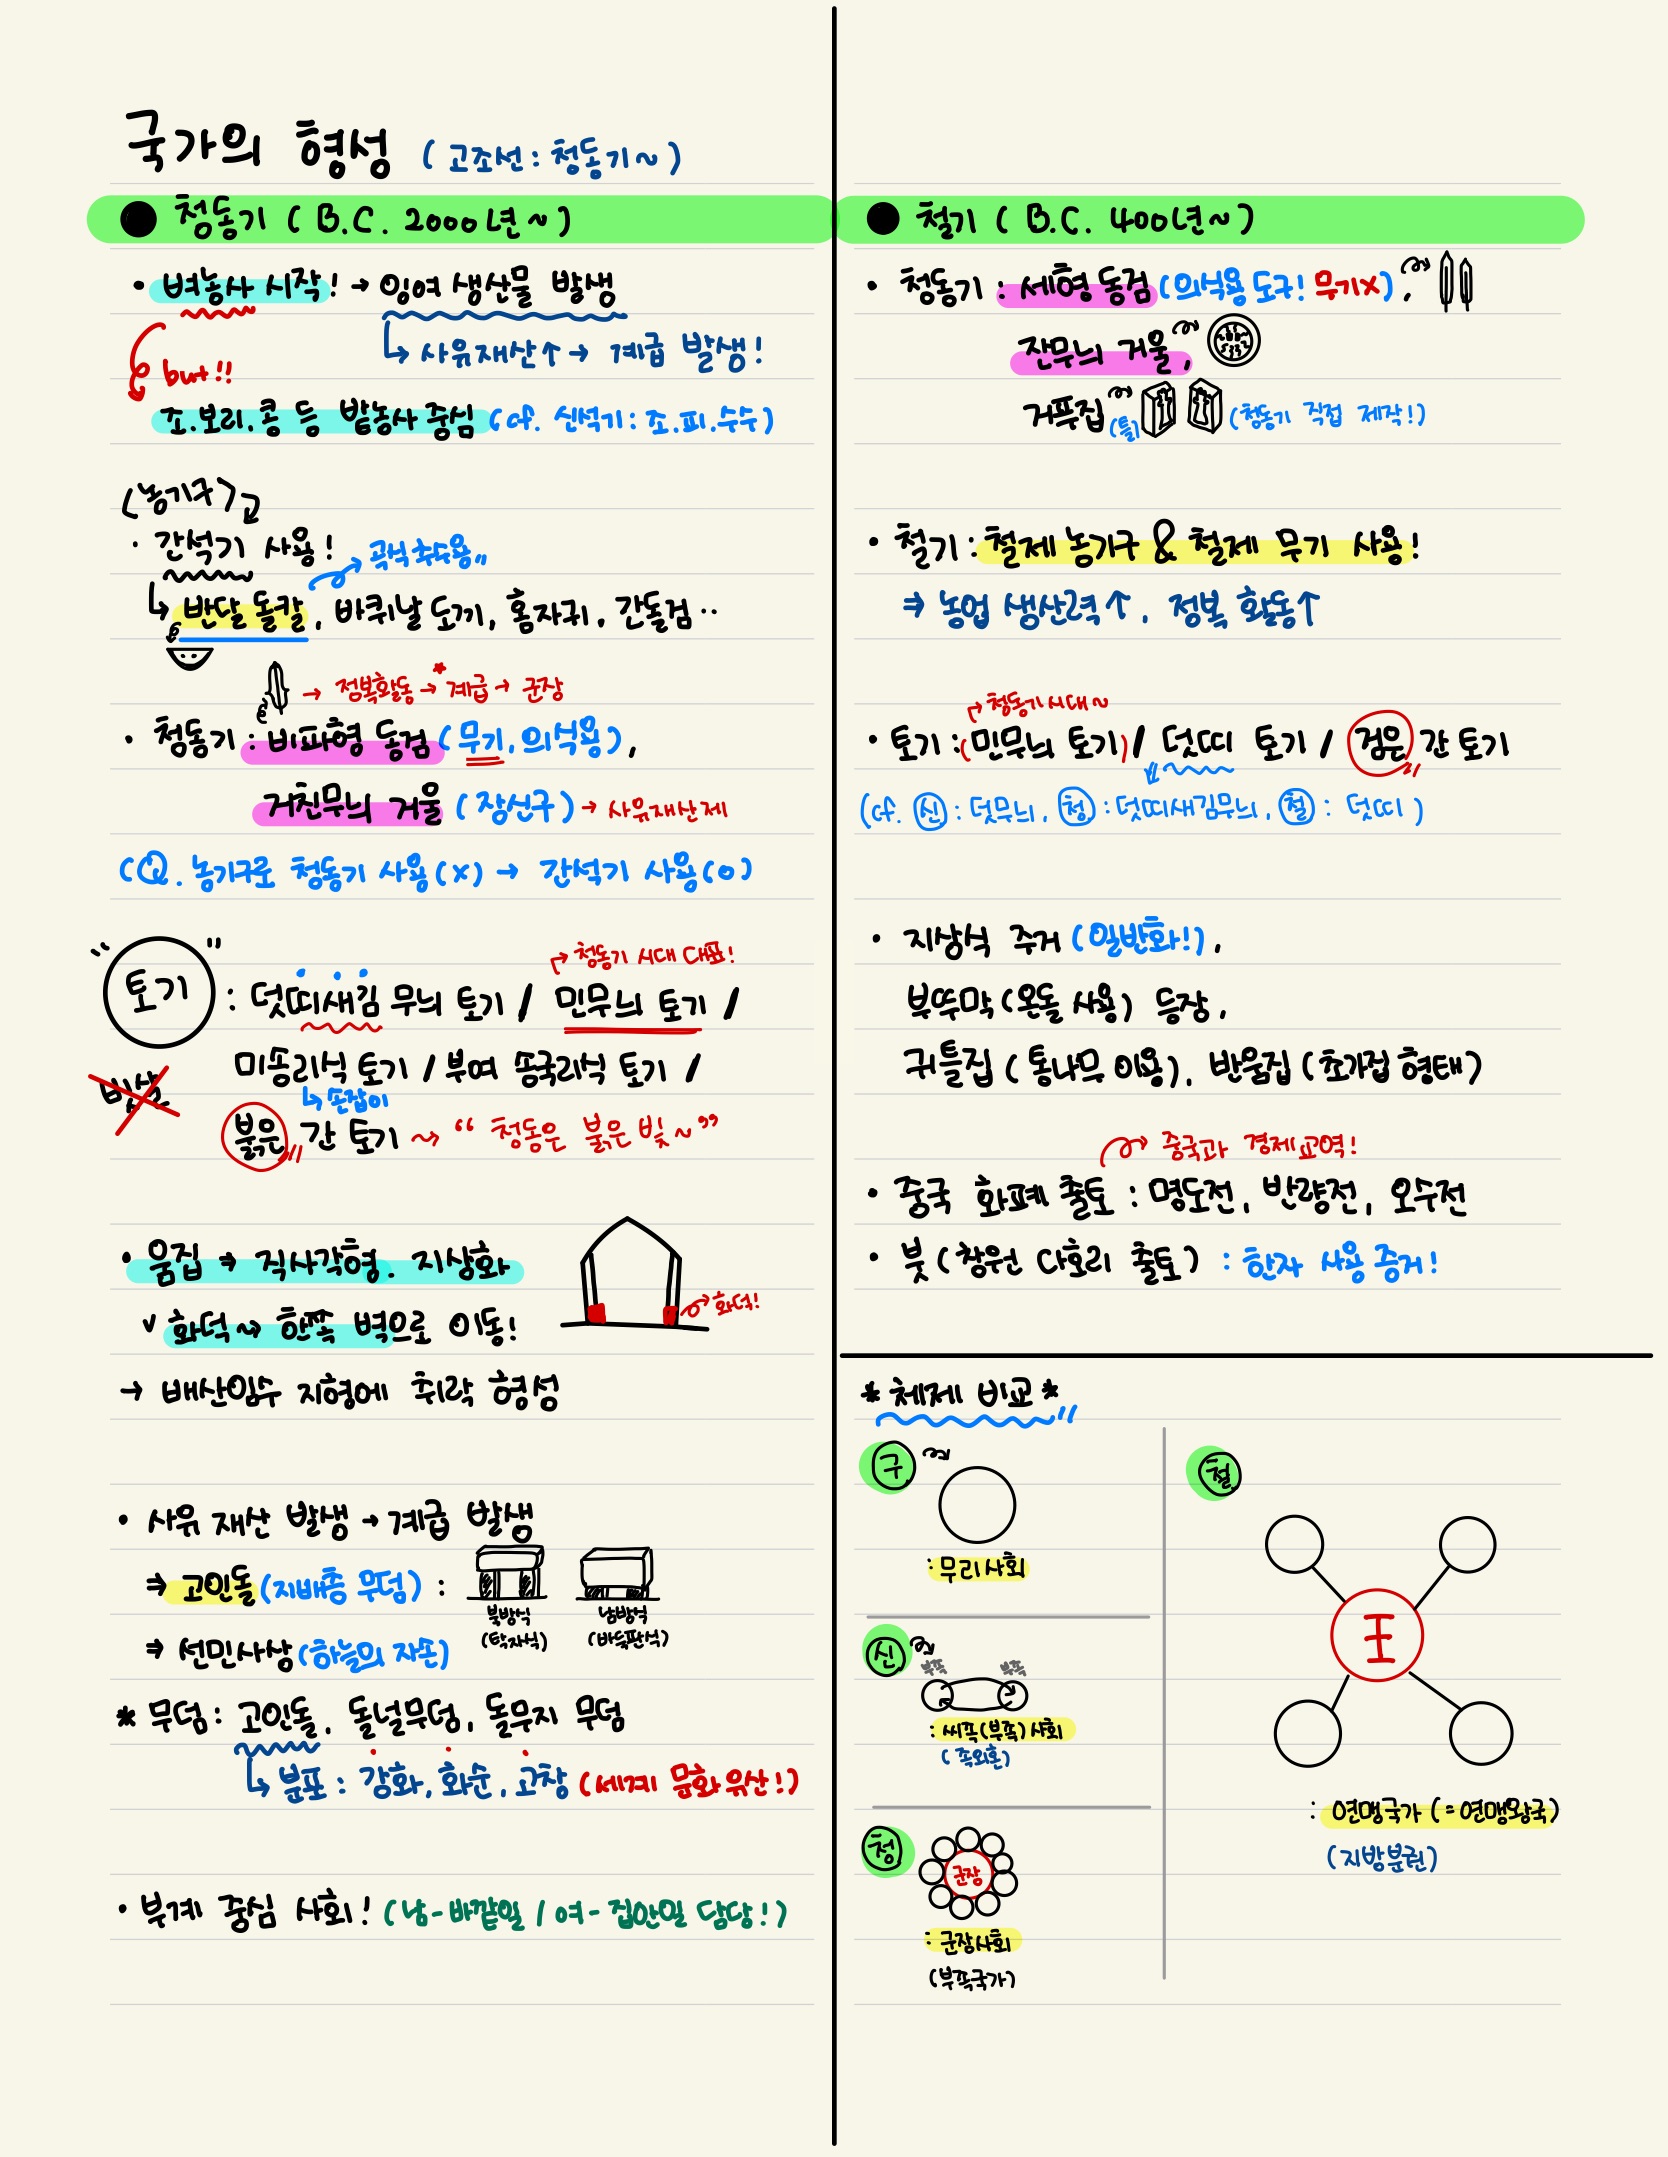 국가의 형성 (고조선 : 청동기~)
● 청동기 ( B.C. 2000년~)
• 벼농사 시작! → 잉여 생산물 발생
↳ 사유재산↑ → 계급 발생!
but!!
조.보리.콩 등 밭농사 중심 (cf. 신석기 : 조.피.수수)
<농기구>
· 간석기 사용!
곡식 추수용〃
↳ 반달 돌칼, 바퀴날 도끼, 홈자귀, 간돌검··
→ 정복활동 → 계급 → 군장
• 청동기 : 비파형 동검 (무기, 의식용),
거친무늬 거울 (장신구) → 사유재산제
(Q. 농기구로 청동기 사용(x) → 간석기 사용(o)
청동기 시대 대표!
"토기" : 덧띠새김 무늬 토기 / 민무늬 토기 /
미송리식 토기 / 부여 송국리식 토기 /
↳ 손잡이
빗살
붉은 간 토기 ~> “ 청동은 붉은 빛~”
• 움집 ⇒ 직사각형. 지상화
화덕!
v 화덕 ~> 한쪽 벽으로 이동!
→ 배산임수 지형에 취락 형성
• 사유 재산 발생 → 계급 발생
⇒ 고인돌 (지배층 무덤) :
북방식
(탁자식)
남방식
(바둑판식)
⇒ 선민사상 (하늘의 자손)
* 무덤 : 고인돌, 돌널무덤, 돌무지 무덤
↳ 분포 : 강화, 화순, 고창 (세계 문화 유산!)
• 부계 중심 사회! (남-바깥일 / 여-집안일 담당!)
● 철기 ( B.C. 400년~)
• 청동기 : 세형 동검 (의식용 도구! 무기x),
잔무늬 거울,
거푸집 (틀) (청동기 직접 제작!)
• 철기 : 철제 농기구 & 철제 무기 사용!
⇒ 농업 생산력↑, 정복 활동↑
청동기시대~
• 토기 : (민무늬 토기) / 덧띠 토기 / 검은 간 토기
(cf. 신 : 덧무늬, 청 : 덧띠새김무늬, 철 : 덧띠 )
• 지상식 주거 (일반화!),
부뚜막 (온돌 사용) 등장,
귀틀집 ( 통나무 이용), 반움집 (초가집 형태)
중국과 경제교역!
• 중국 화폐 출토 : 명도전, 반량전, 오수전
• 붓 ( 창원 다호리 출토) : 한자 사용 증거!
* 체제 비교 *
구
: 무리사회
신
부족 부족
: 씨족(부족) 사회
( 족외혼)
청
군장
: 군장사회
(부족국가)
철
王
: 연맹국가 (=연맹왕국)
(지방분권)